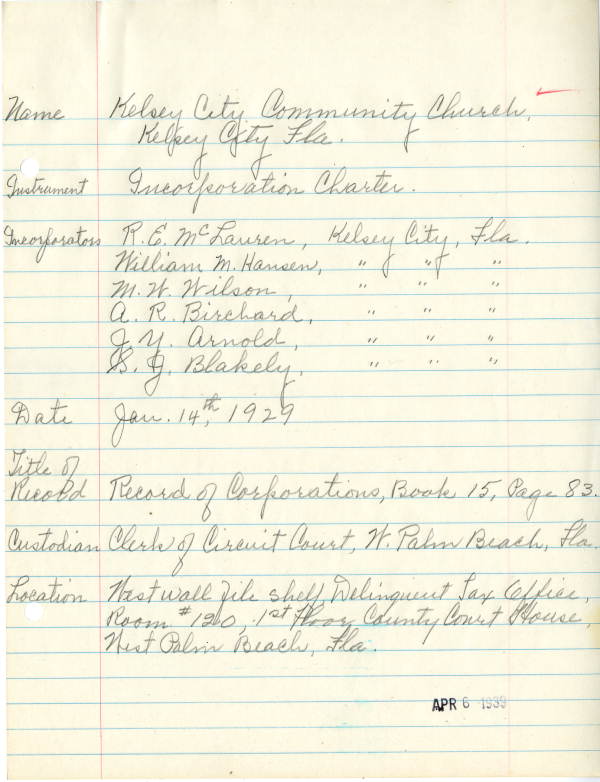 Name Kelsey City Community Church,
Kelsey City Fla.
Instrument Incorporation Charter.
Incorporators R. E. McLauren, Kelsey City, Fla.
William M. Hansen, " " "
M. W. Wilson, " " "
A. R. Birchard, " " "
J. Y. Arnold, " " "
S. J. Blakely, " " "
Date Jan. 14th, 1929
Title of
Record Record of Corporations, Book 15, Page 83.
Custodian Clerk of Circuit Court, W. Palm Beach, Fla.
Location West wall file shelf, Delinquent Tax Office,
Room #120, 1st Floor County Court House,
West Palm Beach, Fla.
APR 6 1939